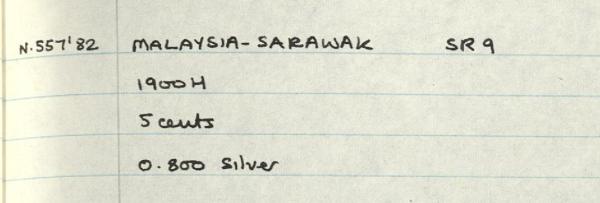 N.557'82 MALAYSIA-SARAWAK SR 9
1900H
5 cents
0.800 Silver